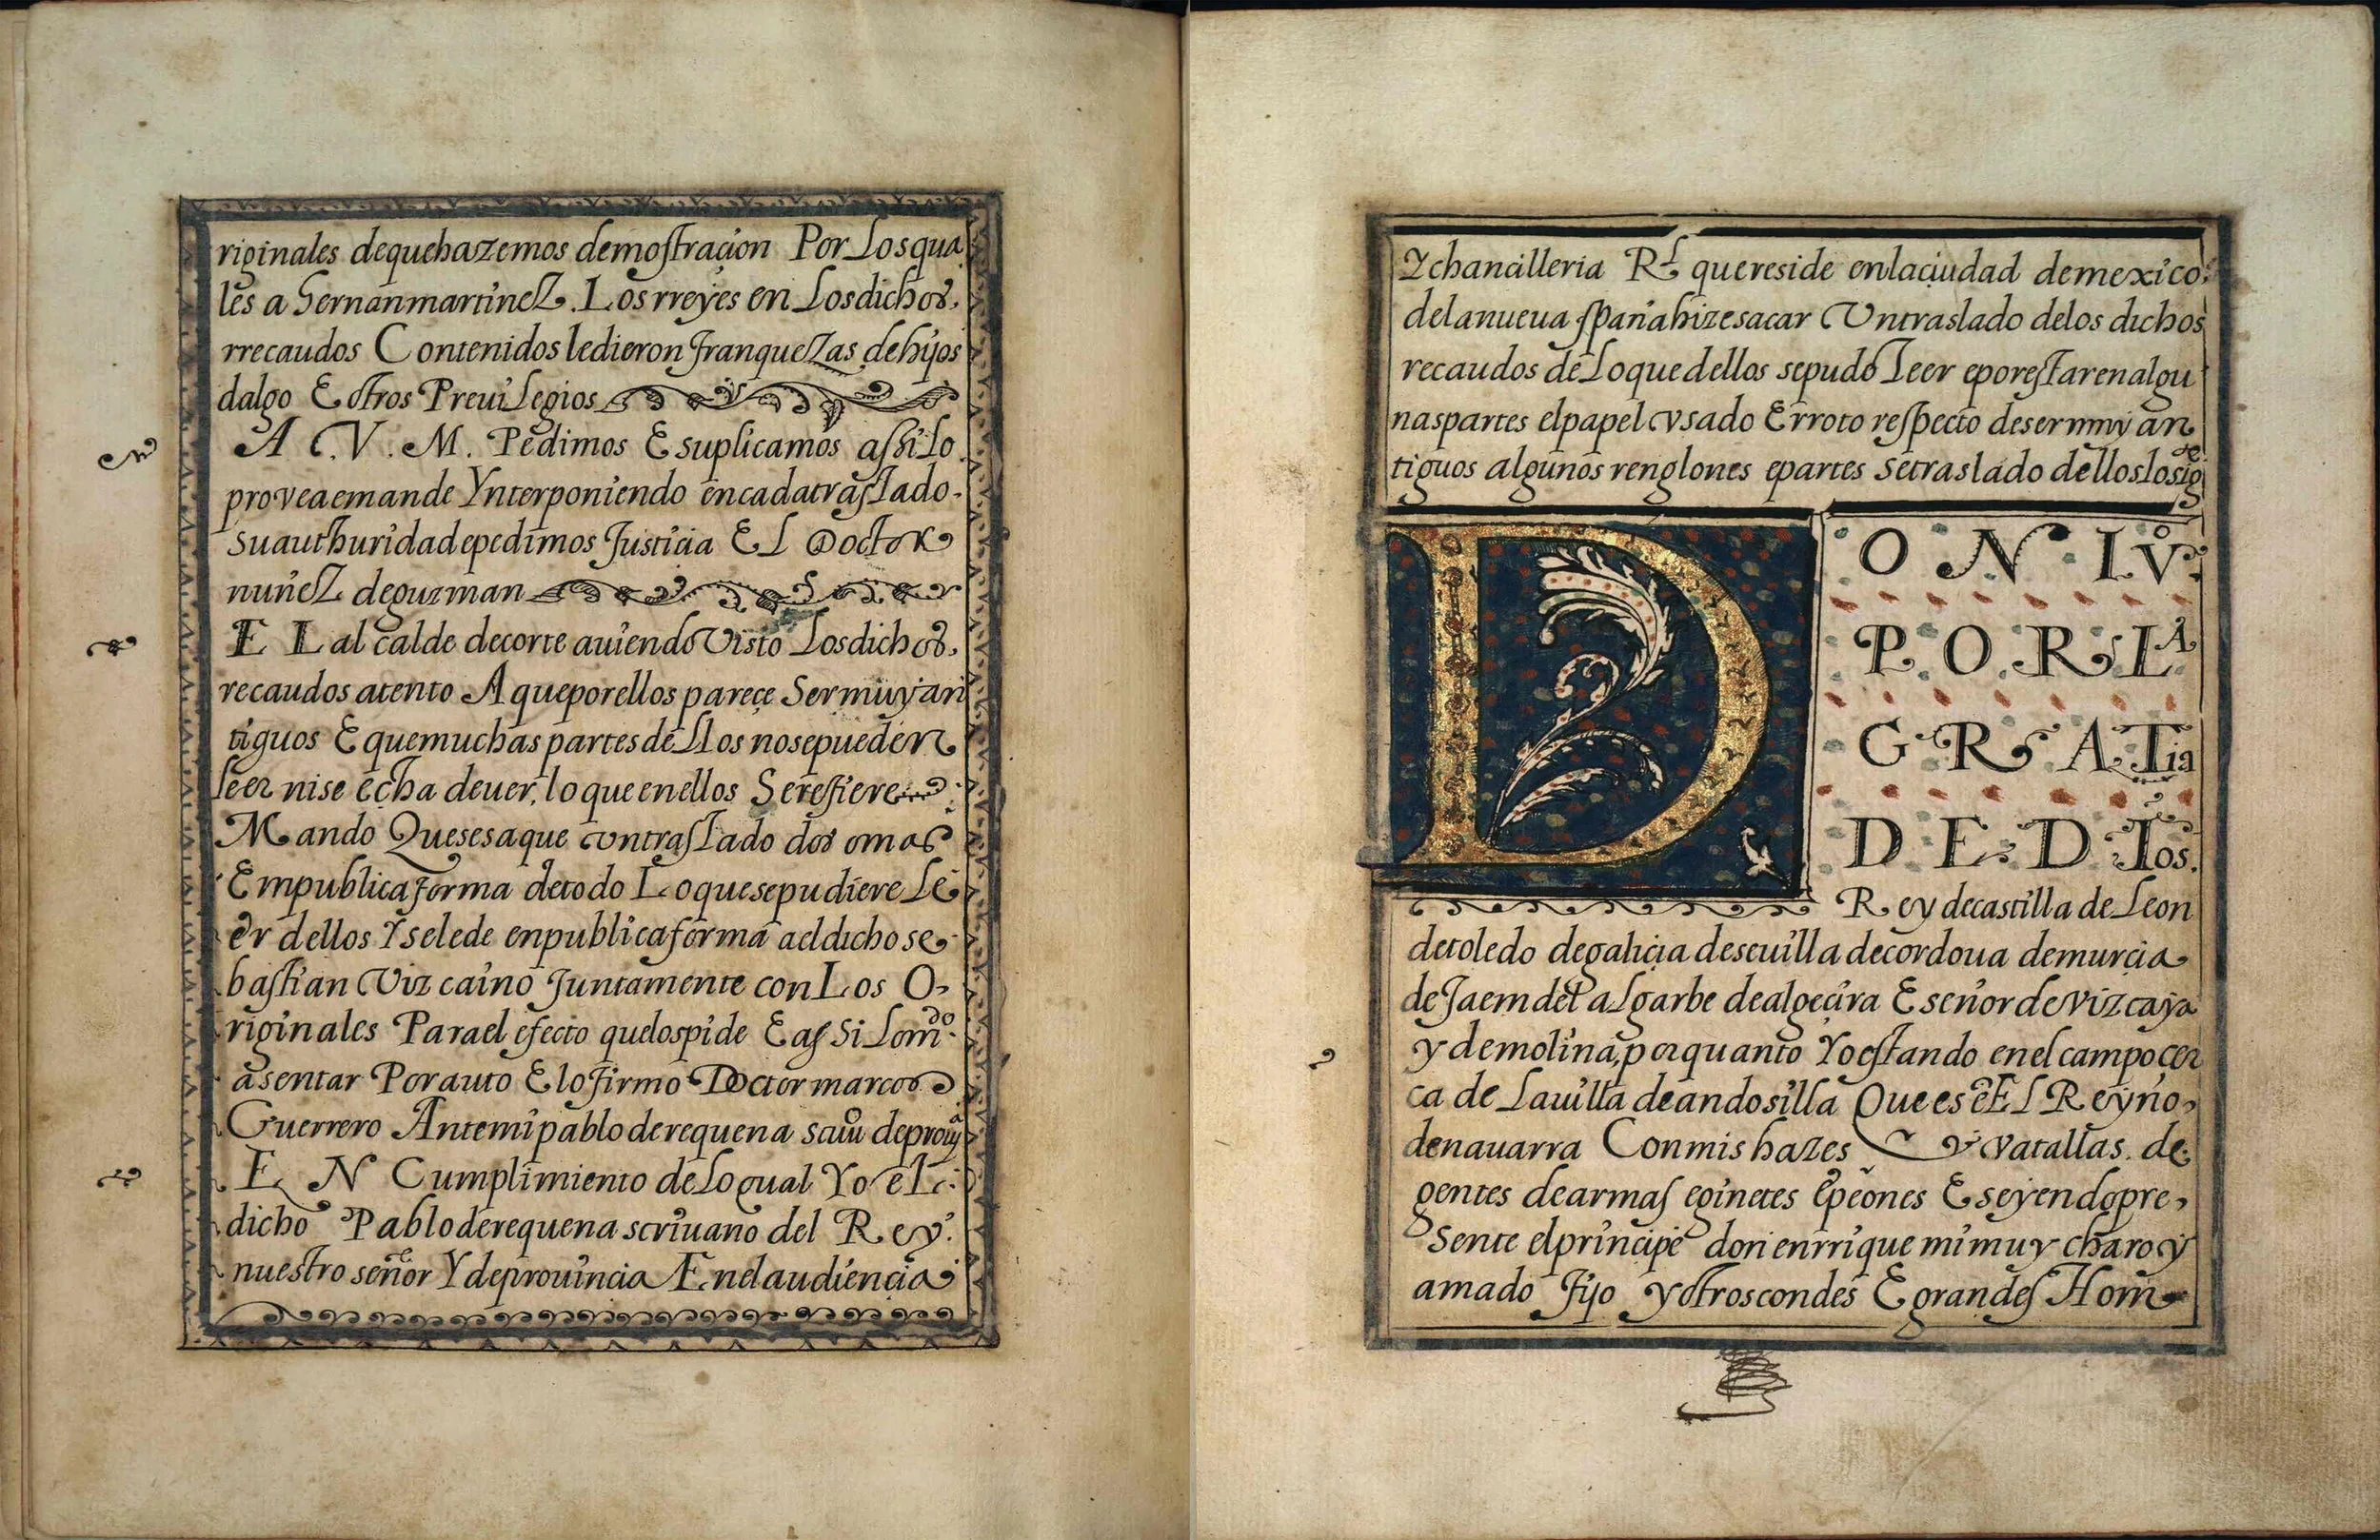 riginales dequehazemos demostraçion Por Losqua
les a hernanmartinez. Losrreyes en Losdichos,
rrecaudos Contenidos ledieron franquezas dehijos
dalgo E otros Preuilegios
A C. V. M. Pedimos E suplicamos assi Lo
proveaemande Ynterponiendo encadatraslado.
suauthuridadepedimos Justicia El Doctor
nuñez deguzman
EL alcalde decorte auiendo Visto Losdichos,
recaudos atento A queporellos pareçe Sermuyan
tiguos E quemuchas partes dellos nosepueden
leer nise echa dever, lo queenellos Serefiere
Mando Quesesaque vntraslado dos omas
Empublica forma detodo Loquesepudiere Le
er dellos Yselede enpublicaforma aeldichose
bastian Vizcaino Juntamente conLos O
riginales Parael efecto quelospide E assi Lom.do
asentar Porauto E lo firmo Doctor marcos
Guerrero Antemi pablo derequena scriu deprouia
EN Cumplimiento deLoqual Yo el
dicho Pablo derequena scriuano del Rey.
nuestro señor Y deprouincia Enelaudiencia
Y chancilleria Rl quereside enlaciudad demexico
delanueua spañahizesacar Vntraslado delos dichos
recaudos deLoquedellos sepudo Leer eporestarenalgu
naspartes elpapel vsado Erroto respecto desermuy an
tiguos algunos renglones epartes setraslado delloslosigte
DON IVo
POR LA
GRATia
DE DIos.
Rey decastilla deLeon
detoledo degaliçia deseuilla decordoua demurçia
deJaem del aLgarbe dealgeçira E señordevizcaya
y demolina, porquanto Yoestando enelcampocer
ca de Lauilla deandosilla Quees ē El Reyno,
denauarra Conmis hazes y vatallas. de
gentes dearmas eginetes epeones E seyendopre,
sente elprincipe don enrrique mi muy charo y
amado fijo yotroscondes E grandes Hom